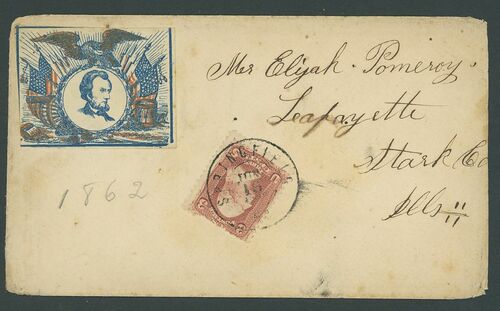 Mrs Elijah Pomeroy
Lafayette
Stark Co
Ills
1862
SPRINGFIELD